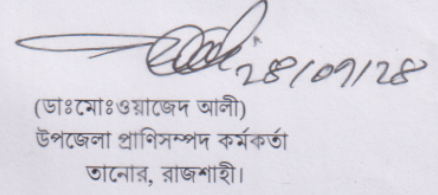 ২৪/০৭/২৪
(ডাঃমোঃওয়াজেদ আলী)
উপজেলা প্রাণিসম্পদ কর্মকর্তা
তানোর, রাজশাহী।